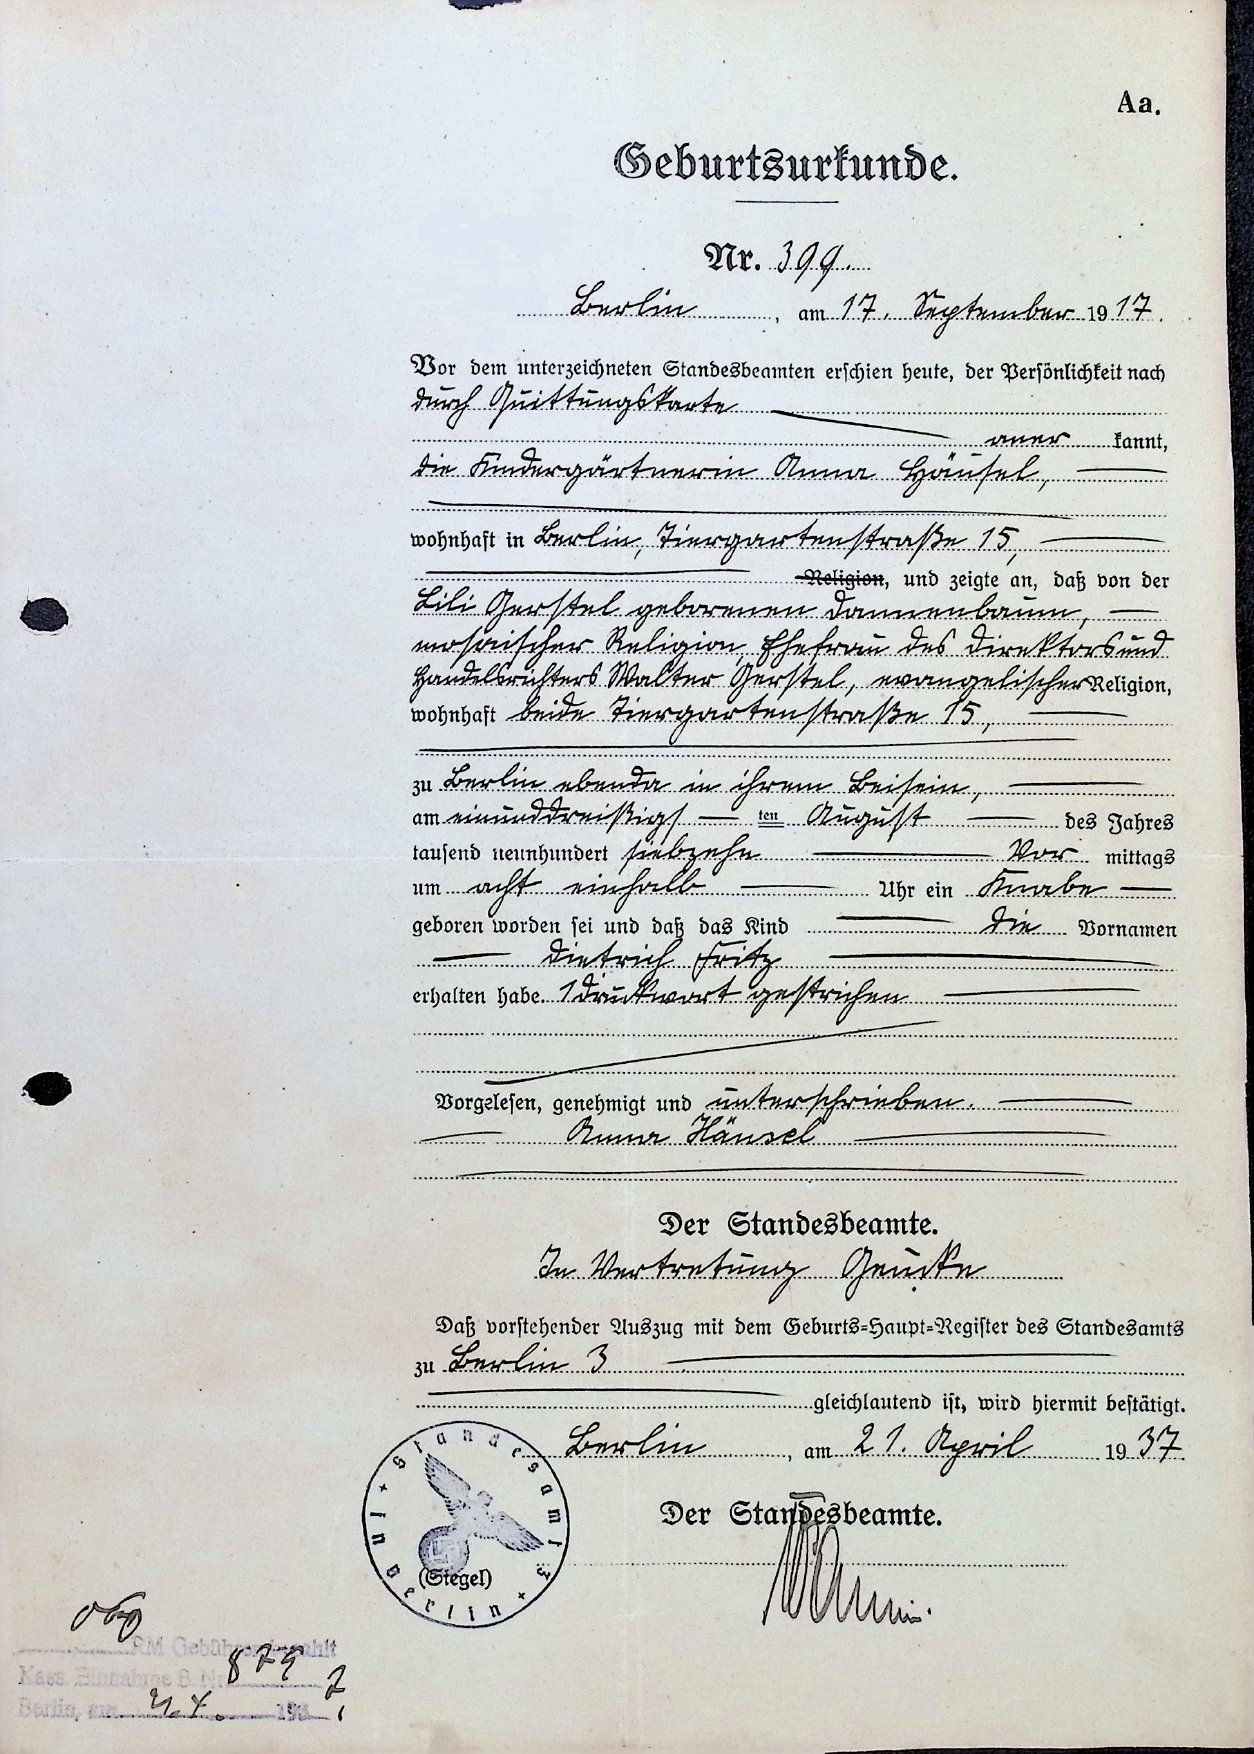 Aa.
Geburtsurkunde.
Nr. 399.
Berlin, am 17. September 1917.
Vor dem unterzeichneten Standesbeamten erschien heute, der Persönlichkeit nach
durch Quittungskarte
anerkannt,
die Kindergärtnerin Anna Hänsel,
wohnhaft in Berlin, Tiergartenstraße 15,
Religion, und zeigte an, daß von der
Lili Gerstel geborenen Dannenbaum,
mosaischer Religion, Ehefrau des Direktors und
Handelsrichters Walter Gerstel, evangelischer Religion,
wohnhaft beide Tiergartenstraße 15,
zu Berlin ebenda in ihrem Beisein,
am einunddreißigsten August des Jahres
tausend neunhundert siebzehn Vormittags
um acht einhalb Uhr ein Knabe
geboren worden sei und daß das Kind die Vornamen
Dietrich Fritz
erhalten habe. 1 Druckwort gestrichen
Vorgelesen, genehmigt und unterschrieben.
Anna Hänsel
Der Standesbeamte.
In Vertretung
Daß vorstehender Auszug mit dem Geburts-Haupt-Register des Standesamts
zu Berlin 3
gleichlautend ist, wird hiermit bestätigt.
Berlin, am 21. April 1937
Der Standesbeamte.
Standesamt 3
Berlin
(Siegel)
RM Gebühren bezahlt
Berlin, am